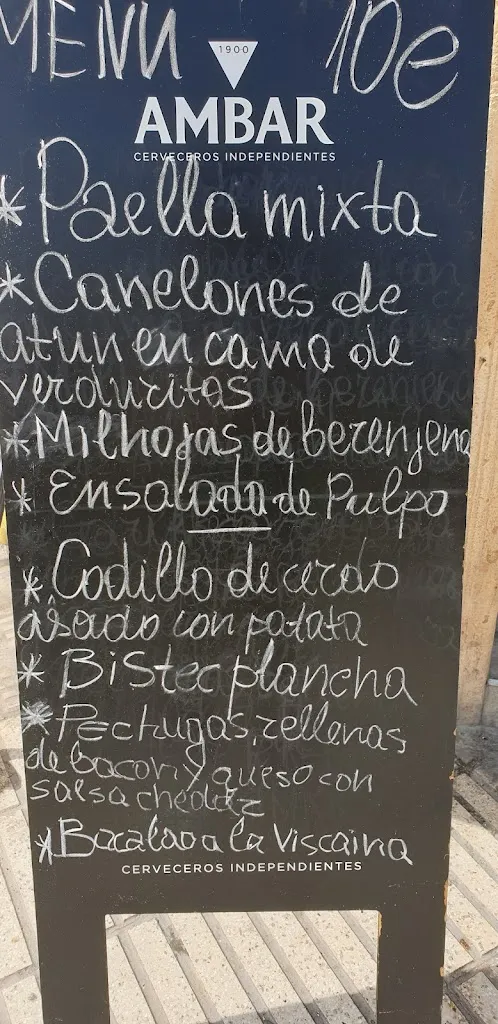 MENU 10€
1900
AMBAR
CERVECEROS INDEPENDIENTES
* Paella mixta
* Canelones de
atun en cama de
verduritas
* Milhojas de berenjena
* Ensalada de Pulpo
* Codillo de cerdo
asado con patata
* Bistec plancha
* Pechugas rellenas
de bacon y queso con
salsa cheddar
* Bacalao a la Viscaina
CERVECEROS INDEPENDIENTES